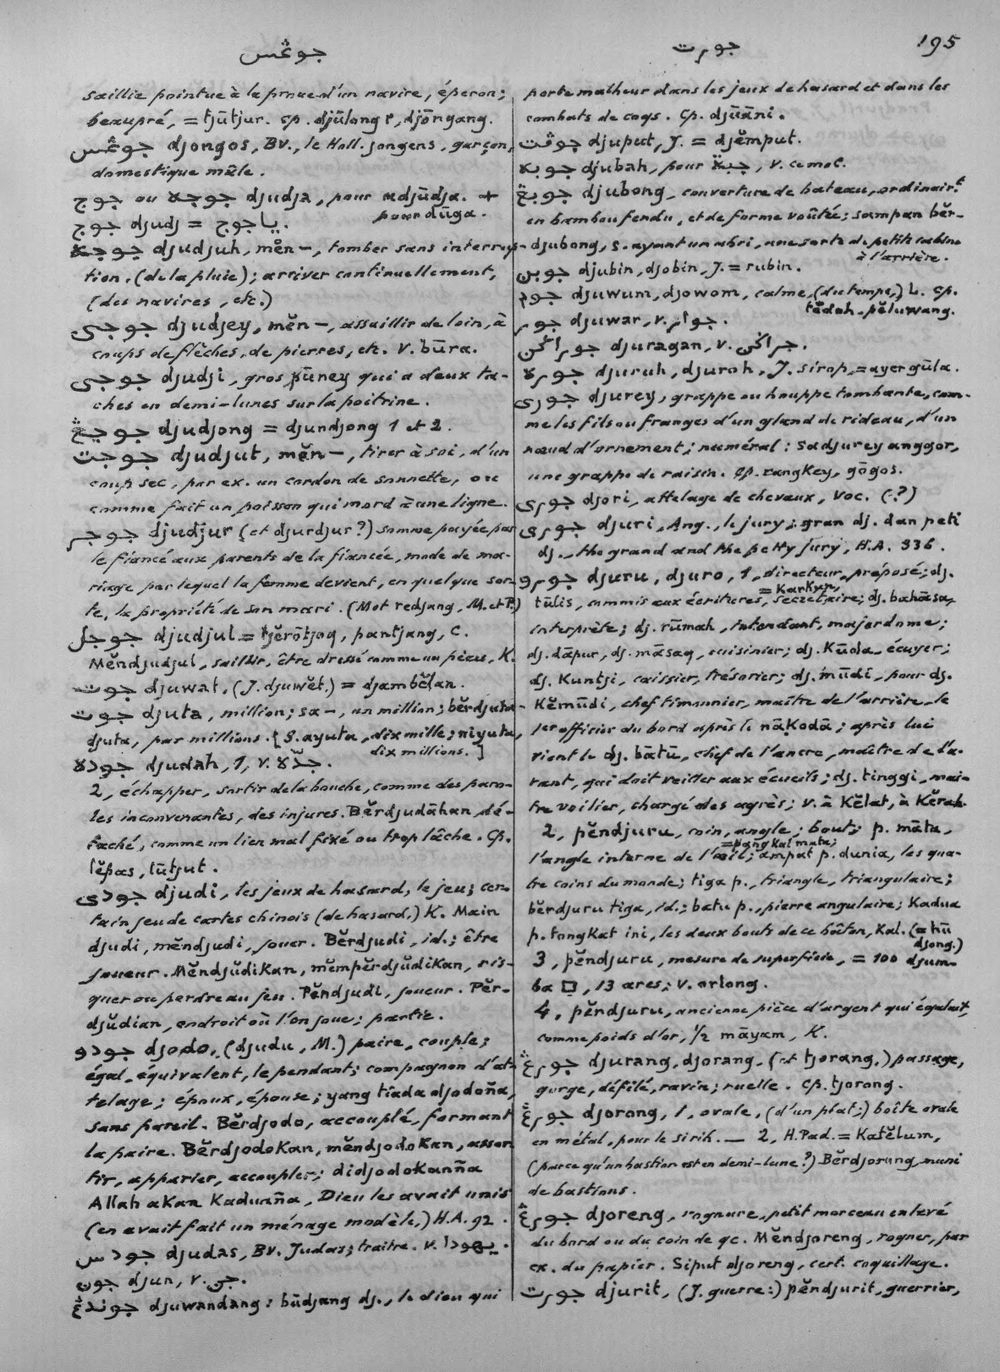 جوڠس
جورت
195
saillie pointue à la proue d'un navire, éperon;
beaupré, = tjūtjur. cp. djūlong 1, djōngang.
جوڠس djongos, Bv., le Holl. jongens, garçon,
domestique mâle.
جوج ou جوجه djudja, pour adjūdja. +
pour dūga.
جوج djudj = ياجوج.
جوجه djudjuh, mĕn–, tomber sans interrup-
tion, (de la pluie); arriver continuellement,
(des navires, etc.)
جوجى djudjey, mĕn–, assaillir de loin, à
coups de flèches, de pierres, etc. v. būra.
جوجى djudji, gros pūney qui a deux ta-
ches en demi-lunes sur la poitrine.
جوجڠ djudjong = djundjong 1 et 2.
جوجت djudjut, mĕn–, tirer à soi, d'un
coup sec, par ex. un cordon de sonnette, ou
comme fait un poisson qui mord à une ligne.
جوجر djudjur (et djurdjur?) somme payée par
le fiancé aux parents de la fiancée, mode de ma-
riage par lequel la femme devient, en quelque sor-
te, la propriété de son mari. (Mot redjang, M. et P.)
جوجل djudjul = tjĕrōtjoq, pantjang, C.
Mĕndjudjul, saillir, être dressé comme un pieu, K.
جوت djuwat, (J. djuwĕt.) = djambĕlan.
جوت djuta, million; sa–, un million; bĕrdjuta-
djuta, par millions. [S. ayuta, dix mille; niyuta,
dix millions.]
جوده djudah, 1, v. جدّه.
2, échapper, sortir de la bouche, comme des paro-
les inconvenantes, des injures. Bĕrdjudāhan, dé-
taché, comme un lien mal fixé ou trop lâche. Cp.
lĕpas, lūtjut.
جودى djudi, les jeux de hasard, le jeu; cer-
tain jeu de cartes chinois (de hasard.) K. Main
djudi, mĕndjudi, jouer. Bĕrdjudi, id.; être
joueur. Mĕndjŭdikan, mĕmpĕrdjŭdikan, ris-
quer ou perdre au jeu. Pĕndjudi, joueur. Pĕr-
djŭdian, endroit où l'on joue; partie.
جودو djodo, (djudu, M.) paire, couple;
égal, équivalent, le pendant; compagnon d'at-
telage; époux, épouse; yang tiada djodoña,
sans pareil. Bĕrdjodo, accouplé, formant
la paire. Bĕrdjodokan, mĕndjodokan, assor-
tir, apparier, accoupler; didjodokanña
Allah akan kaduanña, Dieu les avait unis
(en avait fait un ménage modèle,) H.A. 92.
جودس djudas, Bv. Judas; traître. v. يهودا.
جون djun, v. جن.
جوندڠ djuwandang: būdjang dj., le dieu qui
porte malheur dans les jeux de hasard et dans les
combats de coqs. Cp. djūāni.
جوڤت djuput, J. = djĕmput.
جوبه djubah, pour جبّة, v. ce mot.
جوبڠ djubong, couverture de bateau, ordinairt.
en bambou fendu, et de forme voûtée; sampan bĕr-
djubong, s. ayant un abri, une sorte de petite cabine
à l'arrière.
جوبن djubin, djobin, J. = rubin.
جوم djuwum, djowom, calme, (du temps,) L. cp.
tĕdoh, pĕluwang.
جور djuwar, v. جوار.
جوراڬن djuragan, v. جراڬن.
جوره djuruh, djuroh, J. sirop, = ayer gūla.
جورى djurey, grappe ou houppe tombante, com-
me les fils ou franges d'un gland de rideau, d'un
nœud d'ornement; numéral: sadjurey anggor,
une grappe de raisin. cp. rangkey, gōgos.
جورى djori, attelage de chevaux, voc. (?)
جورى djuri, Ang., le jury; gran dj. dan peti
dj., the grand and the petty jury, H.A. 336.
جورو djuru, djuro, 1, directeur, préposé; dj.
= karkun,
tūlis, commis aux écritures, secrétaire; dj. bahāsa,
interprète; dj. rūmah, intendant, majordome;
dj. dāpur, dj. māsaq, cuisinier; dj. kūda, écuyer;
dj. kuntji, caissier, trésorier; dj. mūdi, pour dj.
kĕmūdi, chef timonnier, maître de l'arrière, le
1er officier du bord après le nākodā; après lui
vient le dj. bātū, chef de l'ancre, maître de l'a-
vant, qui doit veiller aux écueils; dj. tinggi, maî-
tre voilier, chargé des agrès; v. à kĕlat, à kĕrah.
2, pĕndjuru, coin, angle; bout; p. māta,
= pangkal mata;
l'angle interne de l'œil; ampat p. dunia, les qua-
tre coins du monde; tiga p., triangle, triangulaire;
bĕrdjuru tiga, id.; batu p., pierre angulaire; kadua
p. tongkat ini, les deux bouts de ce bâton, Kal. (= hū
djong.)
3, pĕndjuru, mesure de superficie, = 100 djum-
ba □, 13 ares; v. orlong.
4, pĕndjuru, ancienne pièce d'argent qui égalait,
comme poids d'or, ½ māyam, K.
جورڠ djurang, djorang, (et tjorang,) passage,
gorge, défilé, ravin; ruelle. cp. tjorong.
جورڠ djorong, 1, ovale, (d'un plat;) boîte ovale
en métal, pour le sirih. — 2, H. Pad. = katĕlum,
(parce qu'un bastion est en demi-lune?) Bĕrdjorung, muni
de bastions.
جورڠ djoreng, rognure, petit morceau enlevé
du bord ou du coin de qc. Mĕndjoreng, rogner, par
ex. du papier. Siput djoreng, cert. coquillage.
جورت djurit, (J. guerre:) pĕndjurit, guerrier,